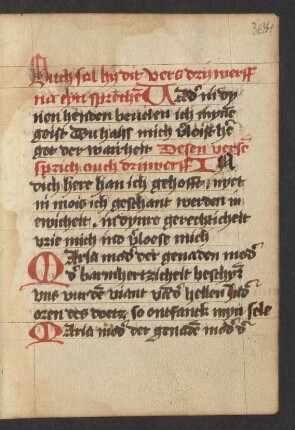 Auch sal hy dit vers driwerff
na eyn sprechē Vad' in dy
nen henden beuelen ich mynē
geist Du hais mich v'loist he
got der wairheit Desen versē
sprich ouch driwerff IN
dich here han ich gehofft nyet
in mois ich geschant werden in
ewicheit in dynre gerechticheit
vrie mich ind v'loese mich
Maria mod' der genaden mod'
d' barmhertzicheit beschyr'
vns vur dē viant vā d' hellen
oren des doetz so ontfanck myn sele
Maria mod' der genadē mod' d'